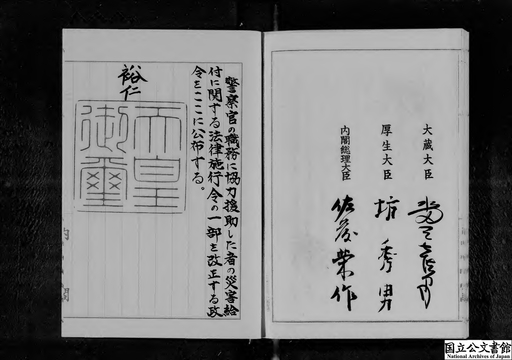 警察官の職務に協力援助した者の災害給
付に関する法律施行令の一部を改正する政
令をここに公布する。
裕仁
天皇
御璽
大蔵大臣
厚生大臣 坊秀男
内閣総理大臣 佐藤榮作
内閣
国立公文書館
National Archives of Japan